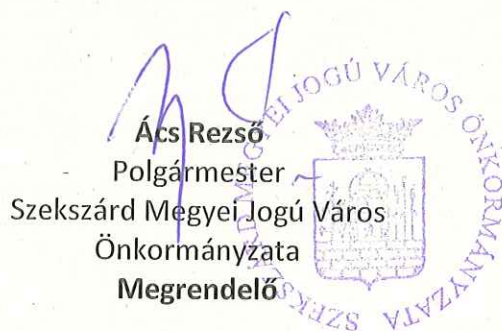 Ács Rezső
Polgármester
Szekszárd Megyei Jogú Város
Önkormányzata
Megrendelő
SZEKSZÁRD MEGYEI JOGÚ VÁROS ÖNKORMÁNYZATA